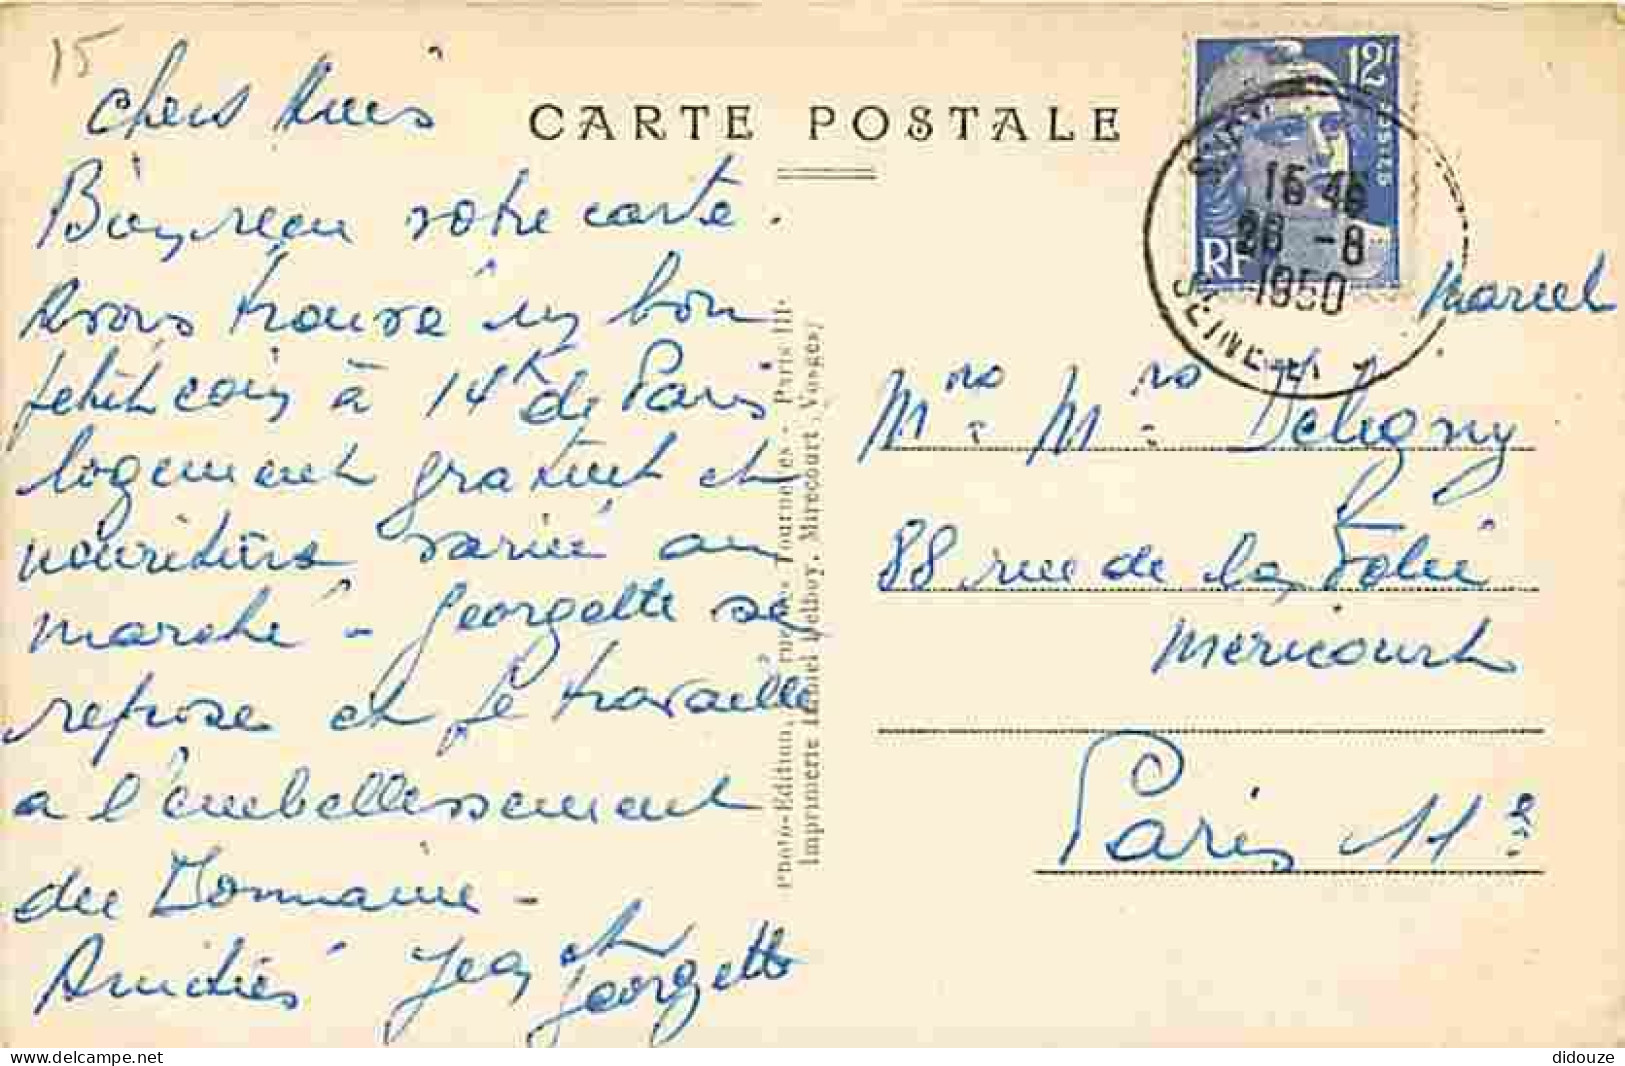 15
Chers Amis
Bien reçu votre carte.
Avons trouvé un bon
petit coin à 14K de Paris
logement gratuit et
nourriture variée au
marché - Georgette se
repose et je travaille
a l'embellissement
du Domaine -
Amitiés Jean et
Georgette
CARTE POSTALE
Photo-Edition, rue des Tournelles - Paris III
Imprimerie Daniel Delboy, Mirecourt, Vosges
12F
POSTES
RF
16 45
26 -8
1950
SEINE
Marcel
Mrs. M Deligny
88 rue de la Folie
Mericourt
Paris 11e
didouze